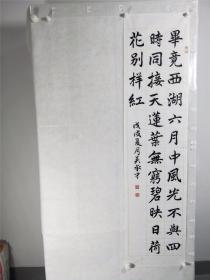 畢竟西湖六月中風光不與四
時同接天蓮葉無窮碧映日荷
花別樣紅
戊戌夏月